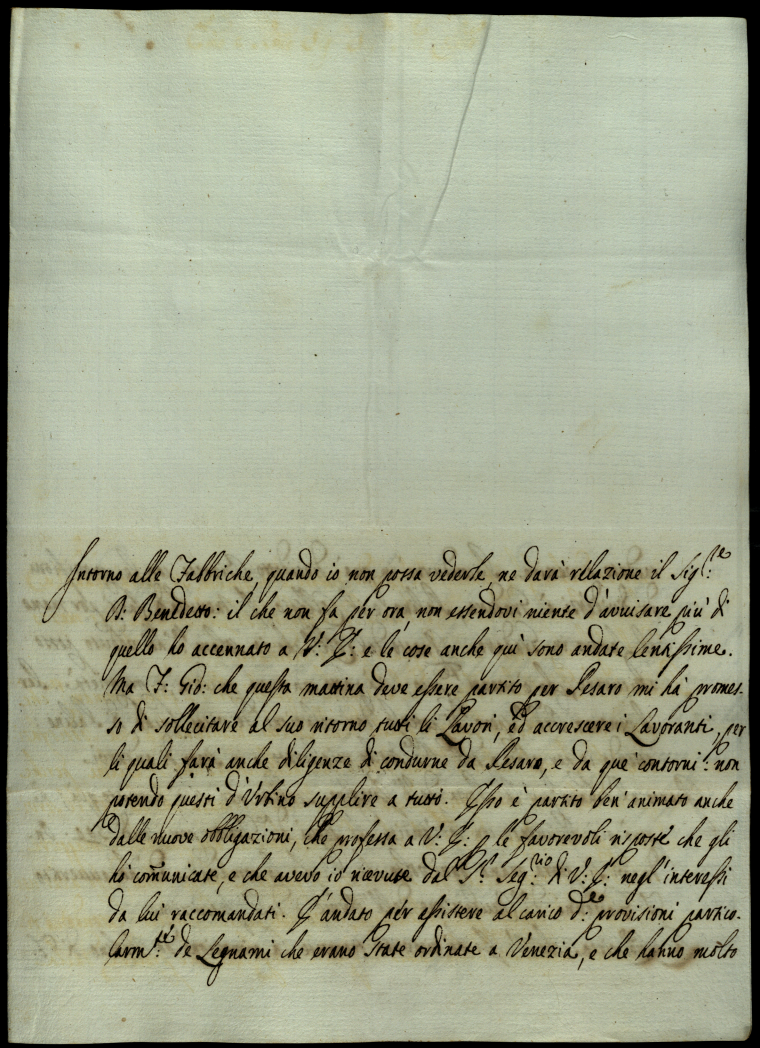 Intorno alle Fabbriche, quando io non possa vederle, ne darà relazione il Sig:re
D: Benedetto: il che non fa per ora, non essendovi niente d'avvisare più di
quello ho accennato a V: E: e le cose anche quì sono andate lentissime.
Ma F: Gio: che questa mattina deve essere partito per Pesaro mi hà promes-
so di sollecitare al suo ritorno tutti li Lavori, ed accrescere i Lavoranti, per
li quali farà anche diligenze di condurne da Pesaro, e da que' contorni: non
potendo questi d'Urbino supplire a tutto. Esso è partito ben' animato anche
dalle nuove obbligazioni, che professa a V: E: p le favorevoli risposte che gli
hò comunicate, e che avevo io ricevute dal S.r Seg:rio di V: E: negl'interessi
da lui raccomandati. E' andato per assistere al carico d:e provisioni partico-
larm:te de Legnami che erano state ordinate a Venezia, e che hanno molto